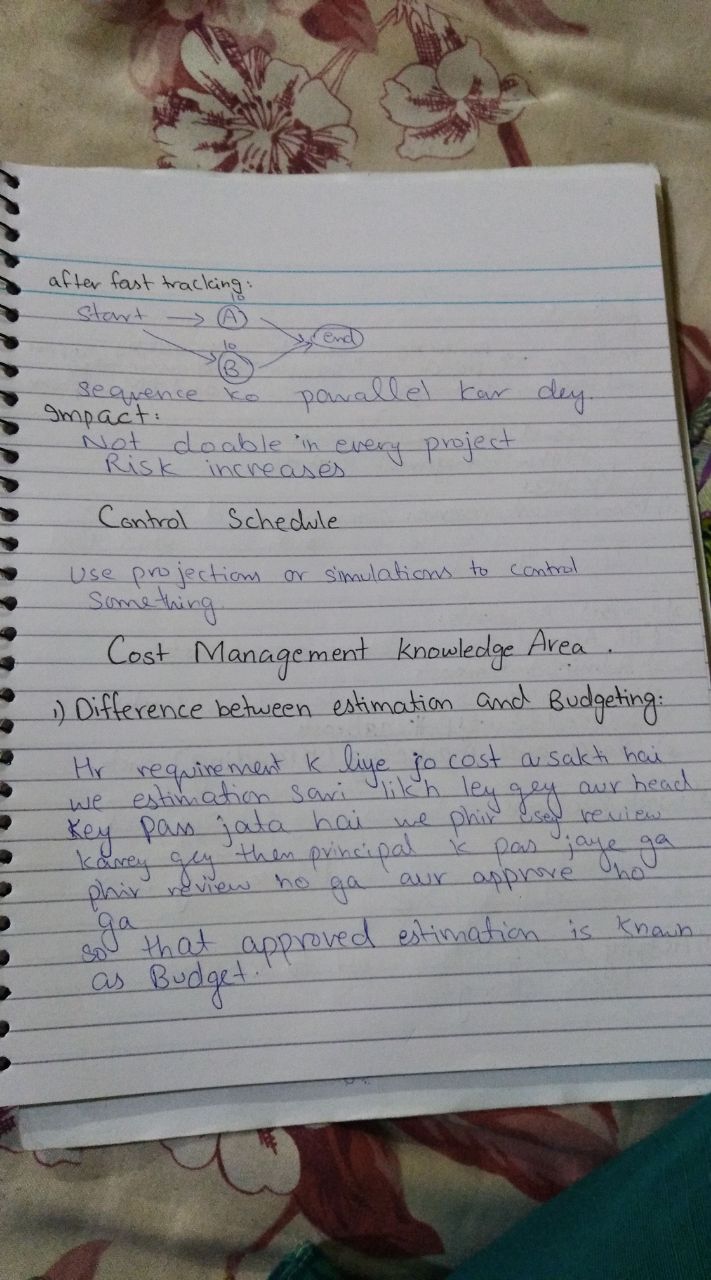 after fast tracking:
10
Start → A
end
10
B
sequence ko parallel kar dey.
Impact:
Not doable in every project
Risk increases
Control Schedule
Use projections or simulations to control
Something.
Cost Management knowledge Area.
1) Difference between estimation and Budgeting:
Hr requirement k liye jo cost a sakti hai
we estimation sari likh ley gey aur head
key pass jata hai we phir usey review
karey gey then principal k pas jaye ga
phir review ho ga aur approve ho
ga
so that approved estimation is known
as Budget.